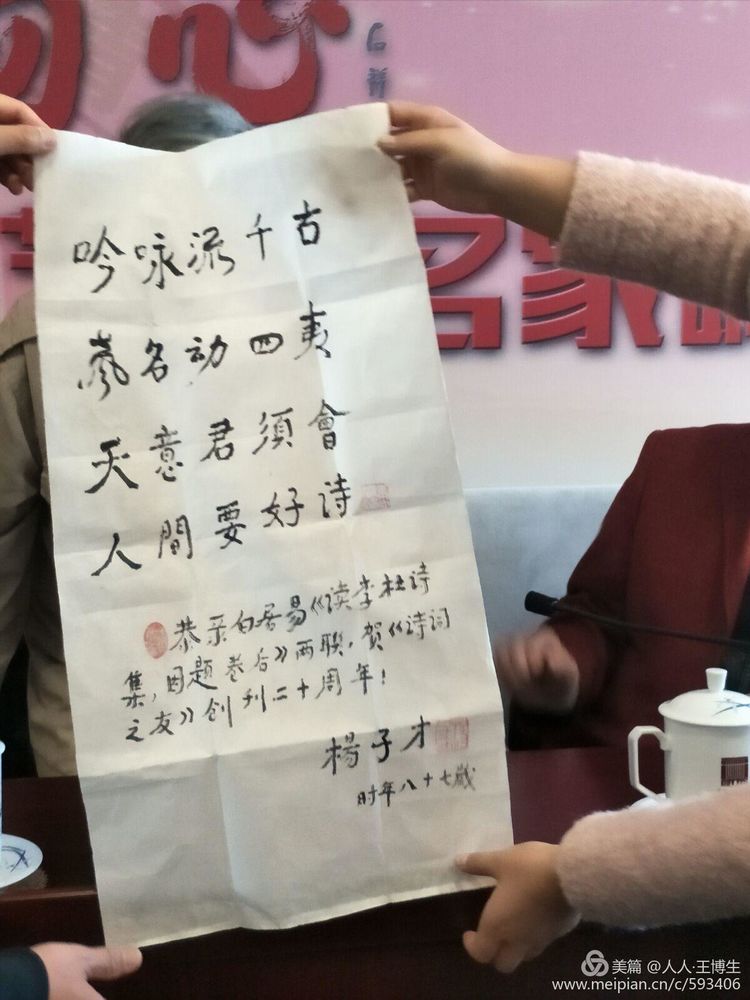 心
石祥
名家
吟咏流千古
声名动四夷
天意君須會
人間要好诗
恭采白居易《读李杜诗
集,因题卷后》两联,贺《诗词
之友》创刊二十周年!
楊子才
时年八十七歲
美篇 @人人·王博生
www.meipian.cn/c/593406